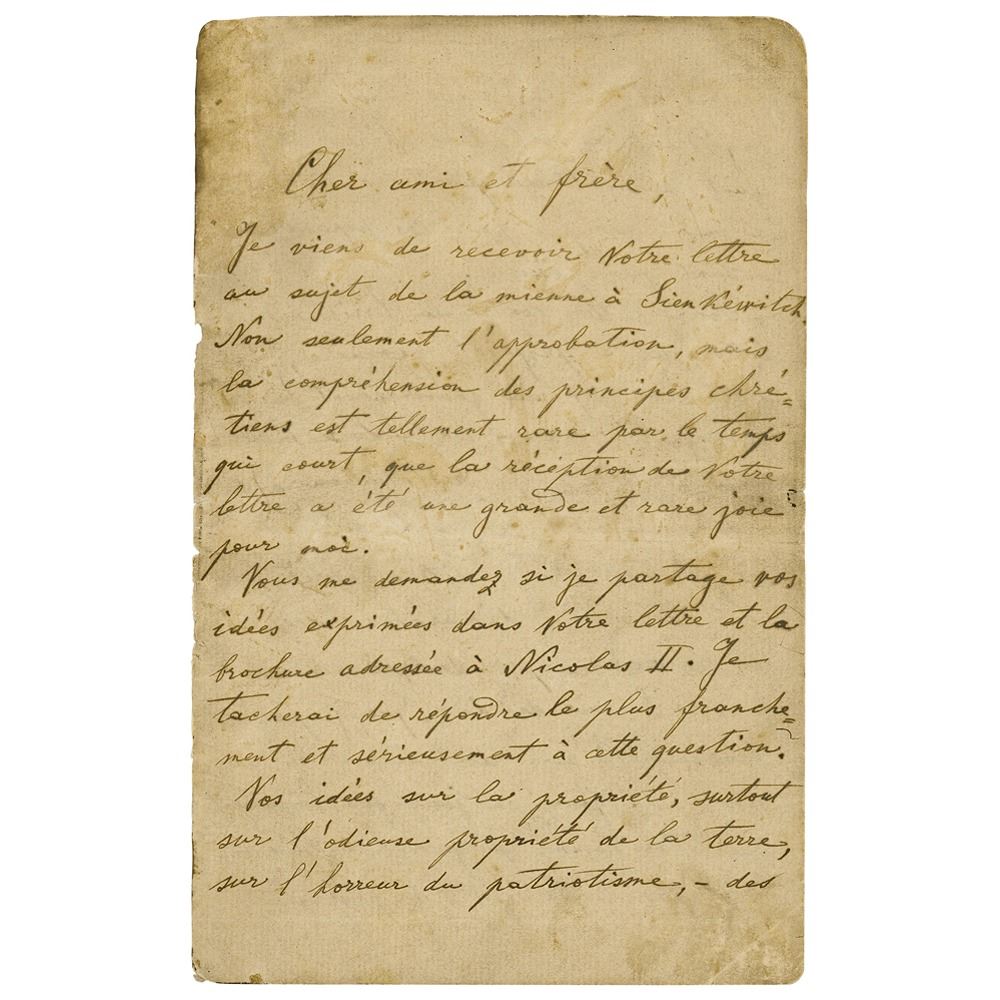 Cher ami et frère,
Je viens de recevoir Votre lettre
au sujet de la mienne à Sienkéwitch.
Non seulement l'approbation, mais
la compréhension des principes chré=
tiens est tellement rare par le temps
qui court, que la réception de Votre
lettre a été une grande et rare joie
pour moi.
Vous me demandez si je partage vos
idées exprimées dans Votre lettre et la
brochure adressée à Nicolas II. Je
tacherai de répondre le plus franche=
ment et sérieusement à cette question.
Vos idées sur la propriété, surtout
sur l'odieuse propriété de la terre,
sur l'horreur du patriotisme, - des